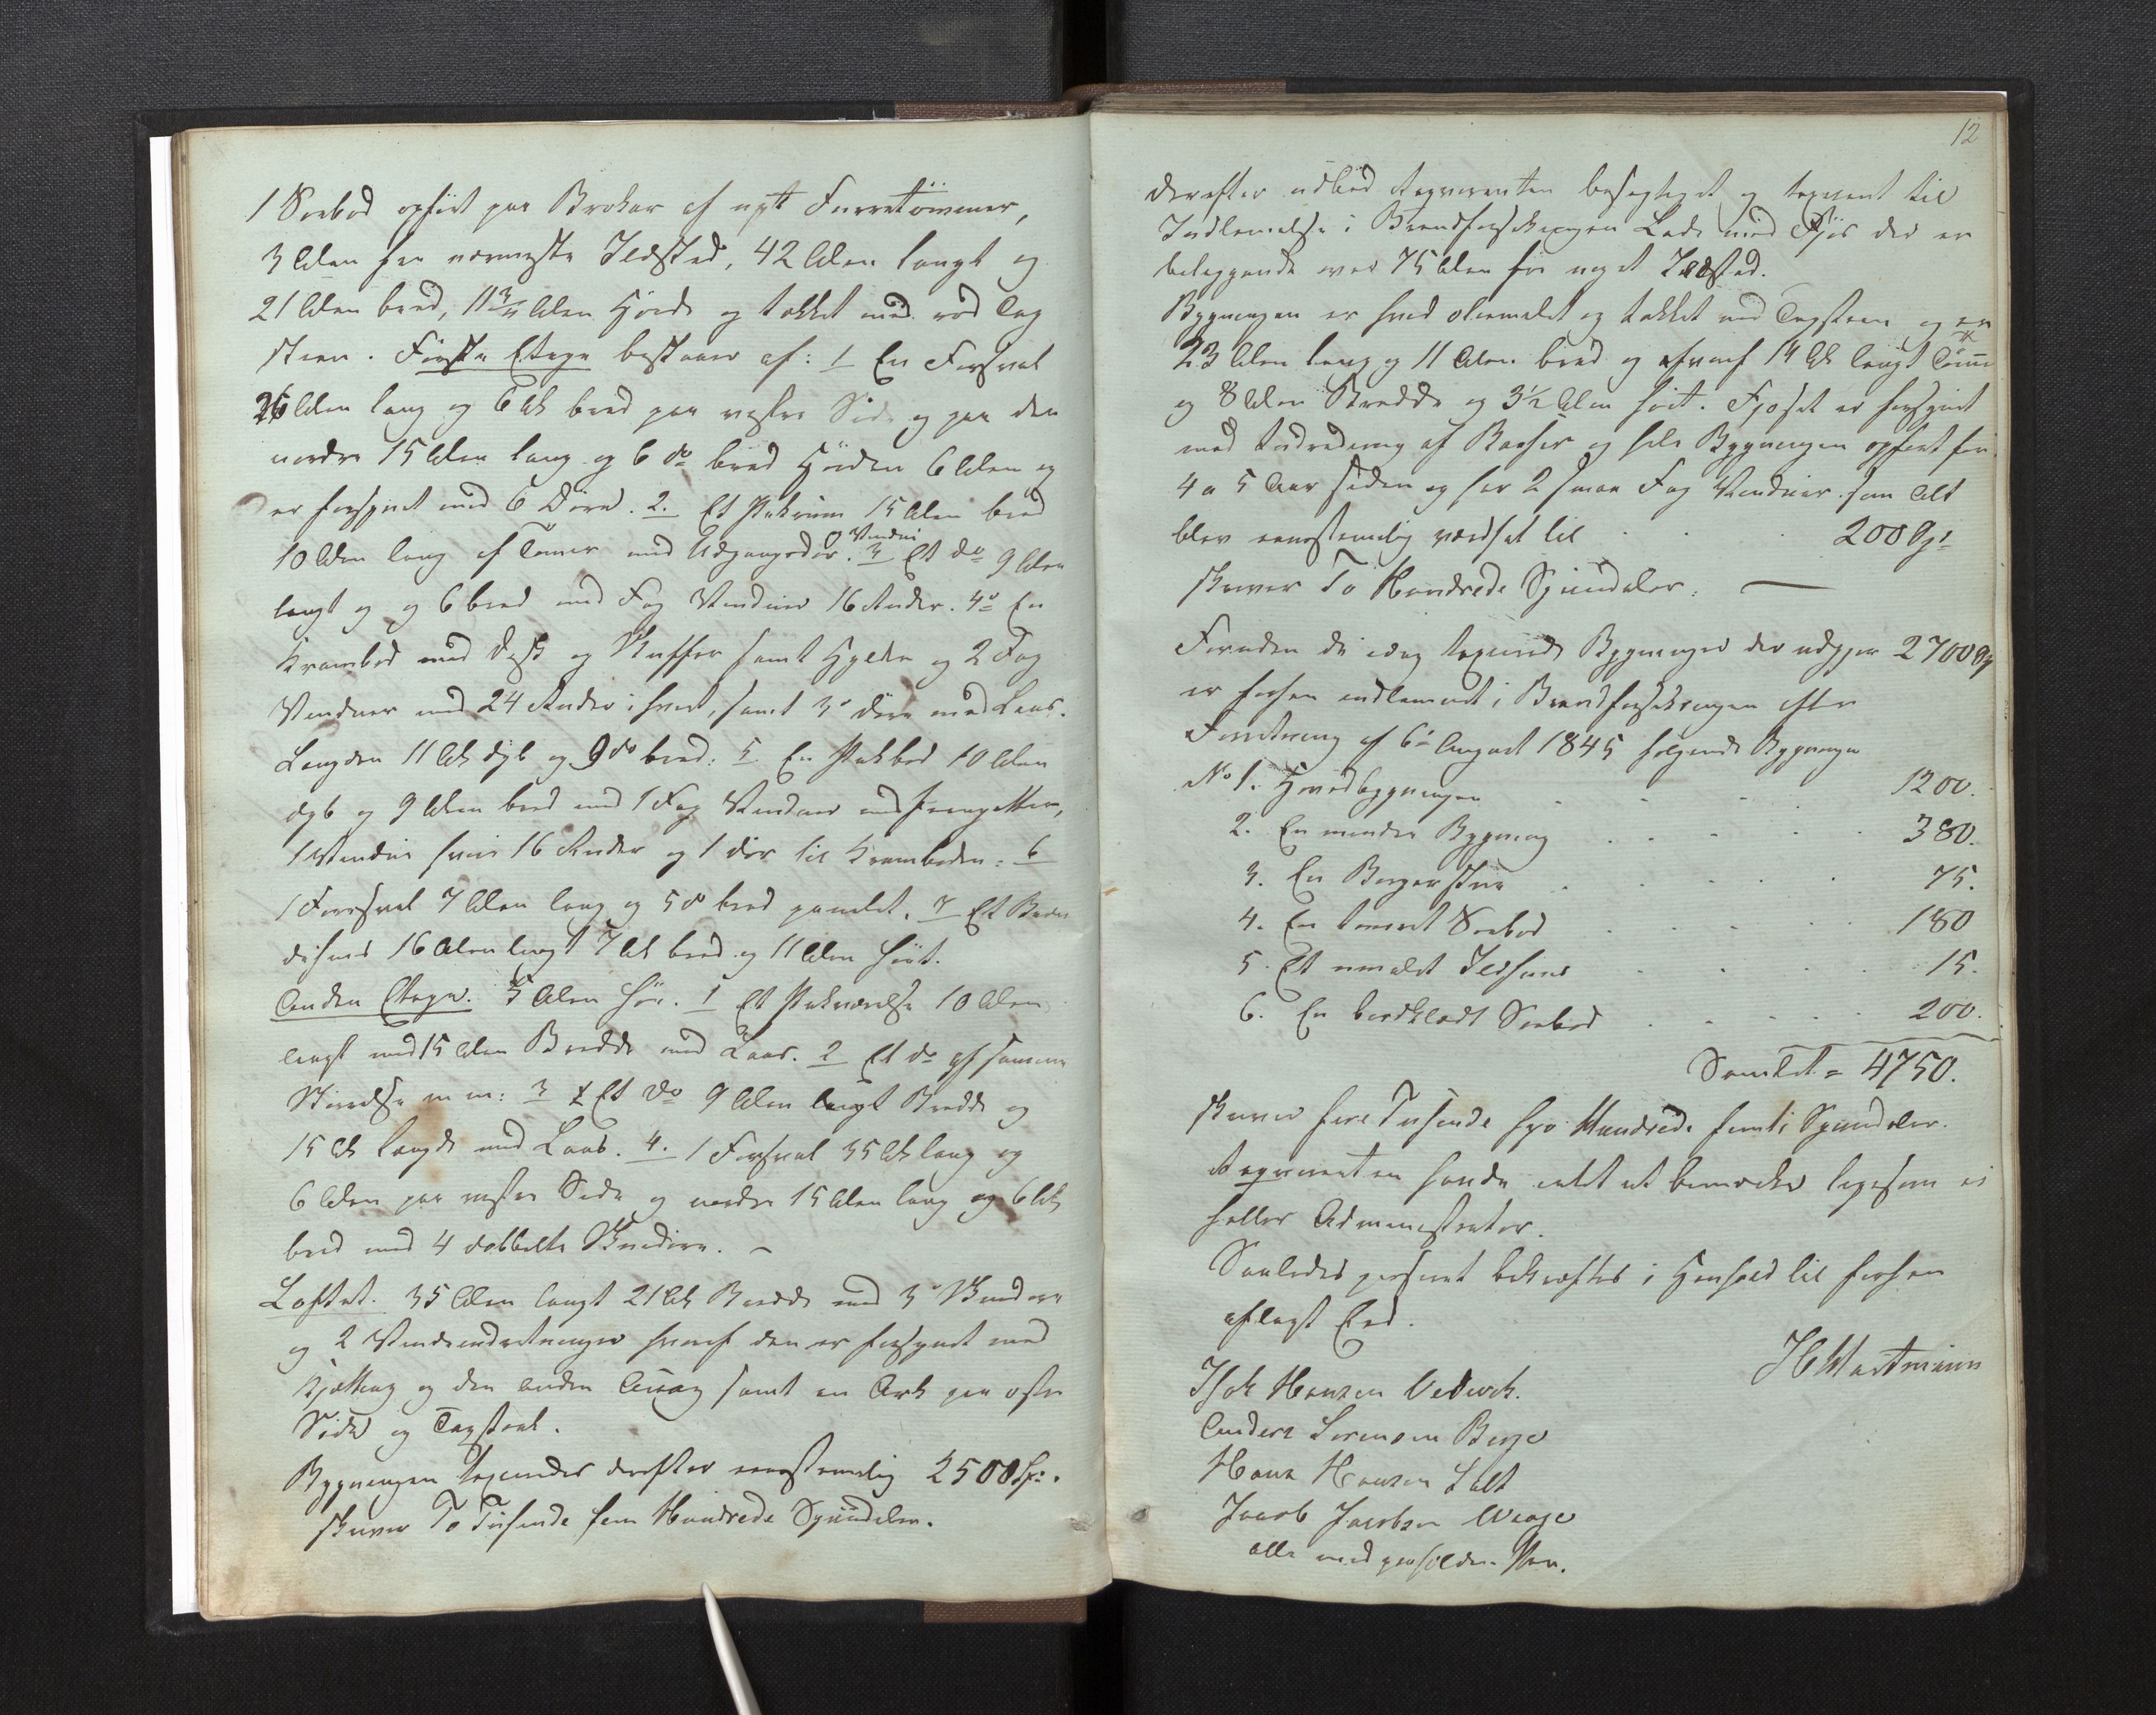 1 Søebod opført paa Brokar af nytt Furretömmer,
3 Alen fra nærmeste Ildsted, 42 Alen langt og
21 Alen bred, 11 3/4 Alen Höide og takket med röd Tag
steen. Første Etage bestaaer af: 1 En Forsval
26 Alen lang og 6 Al bred paa vestre Side og paa den
nordre 15 Alen lang og 6 do bred Höiden 6 Alen og
er forsynet med 6 Döre. 2. Et Pakrum 15 Alen bred
10 Alen lang af Tømer med Udgangsdör. 3 Et do 9 Alen
og Vindue
langt og og 6 bred med Fag Vinduer 16 Ruder. 4o En
Krambod med Disk og Skuffer samt Hylder og 2 Fag
Vinduer med 24 Ruder i hvert, samt 3 döre med Laas.
Længden 11 Al dyb og 9 do bred. 5 En Pakbod 10 Alen
dyb og 9 Alen bred med 1 Fag Vinduer med Jerngitter,
1 Vindue hvori 16 Ruder og 1 dör til Kramboden. 6
1 Forsval 7 Alen lang og 5 do bred panelet. 7 Et
16 Alen langt 7 Al bred og 11 Alen höit.
Anden Etage. 5 Alen höi. 1 Et Pakværelse 10 Alen
langt med 15 Alen Bredde med Laas. 2 Et do af samme
Störrelse m m: 3 Et do 9 Alen langt Bredde og
15 Al Længde med Laas. 4. 1 Forsval 35 Al lang og
6 Alen paa vestre Side og nordre 15 Alen lang og 6 Al
bred med 4 dobbelte
Loftet. 35 Alen langt 21 Al Bredde med 3
og 2 Vindeindretninger hvoraf den er forsynet med
Kjetting og den anden Toug samt en Ark paa östre
Side og Tagstool.
Bygningen taxeredes derefter eenstemmig 2500 Sp:
skriver To Tusende fem Hundrede Spesidaler.
12
Derefter udbød Reqvirenten besigtiget og taxeret til
Indlemmelse i Brandforsikringen Lade med Fjös der er
beliggende over 75 Alen fra noget Ildsted.
Bygningen er hvid oliemalet og takket med Tagsteen og er
23 Alen lang og 11 Alen bred og hvoraf 14 Al langt Tömm
og 8 Alen Bredde og 3 1/2 Alen höit. Fjöset er forsynet
med Indredning af Baaser og hele Bygningen opført for
4 a 5 Aar siden og har 2 smaa Fag Vinduer som Alt
blev eenstemmig værdsat til 200 Sp
skriver To Hundrede Spesidaler.
Foruden de idag taxerede Bygninger der udgjør 2700 Sp
er forhen indlemmet i Brandforsikringen efter
Forretning af 6te August 1845 følgende Bygninger
No 1. Hovedbygningen 1200.
2. En mindre Bygning 380.
3. En Borgerstue 75.
4. En tømret Søebod 180
5. Et umalet Ildhuus 15.
6. En bordklædt Søebod 200.
Samlet = 4750.
skriver fire Tusende syv Hundrede femti Spesidaler.
Reqvirenten havde intet at bemærke ligesom ei
heller Administrator.
Saaledes passeret bekræftes i Henhold til forhen
aflagt Eed.
H Hartmann
Isak Hansen Vedvik.
Anders Sörensen Berge
Hans Hansen Salt
Jacob Jacobsen Waage
alle med paaholden Pen.